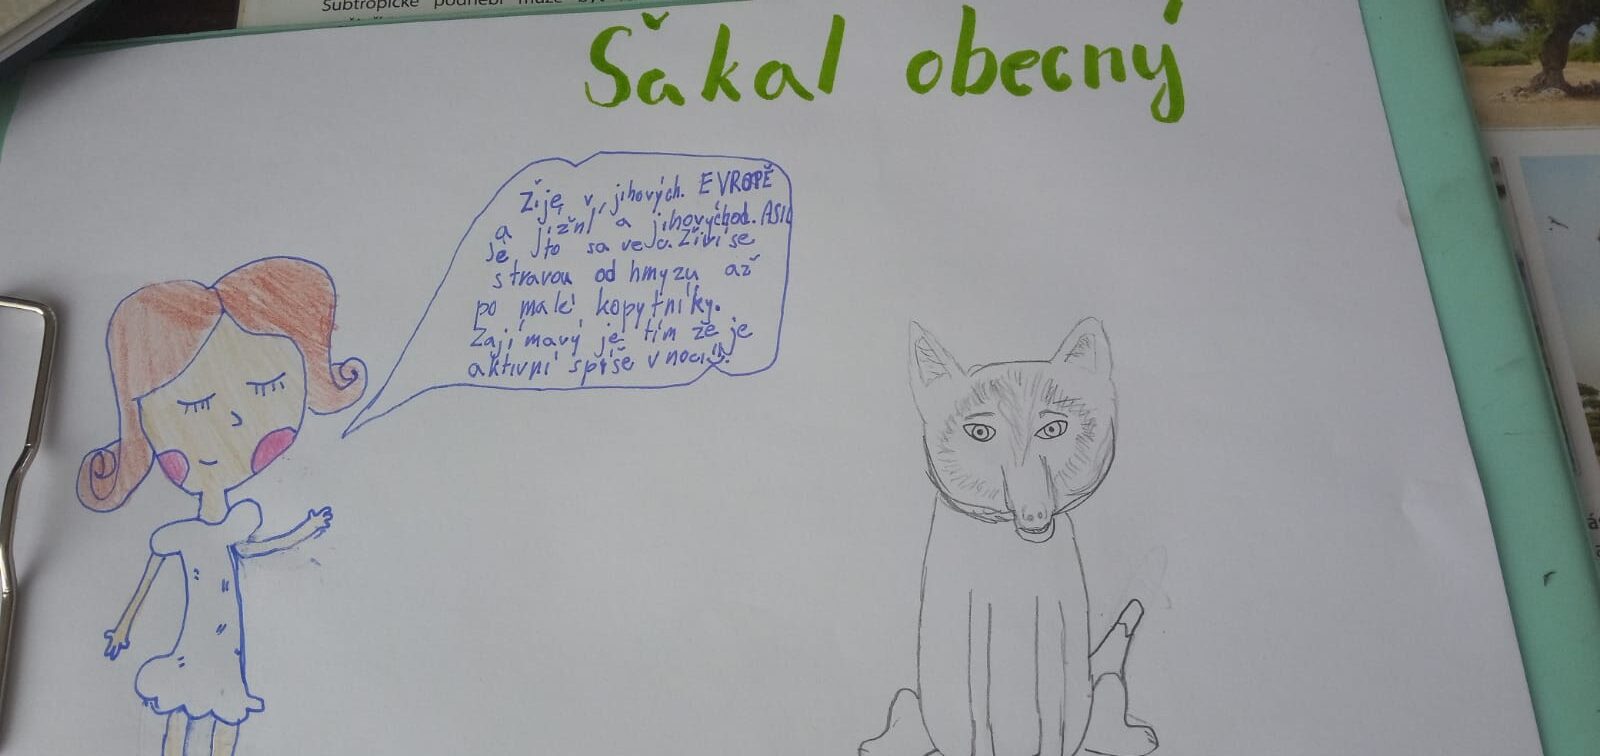 Subtropické podnebí může být
Šakal obecný
Žije v jihových. EVROPĚ
a jižní a jihovýchod. ASII
Je to savec. Živí se
stravou od hmyzu až
po malé kopytníky.
Zajímavý je tím že je
aktivní spíše v noci!!!